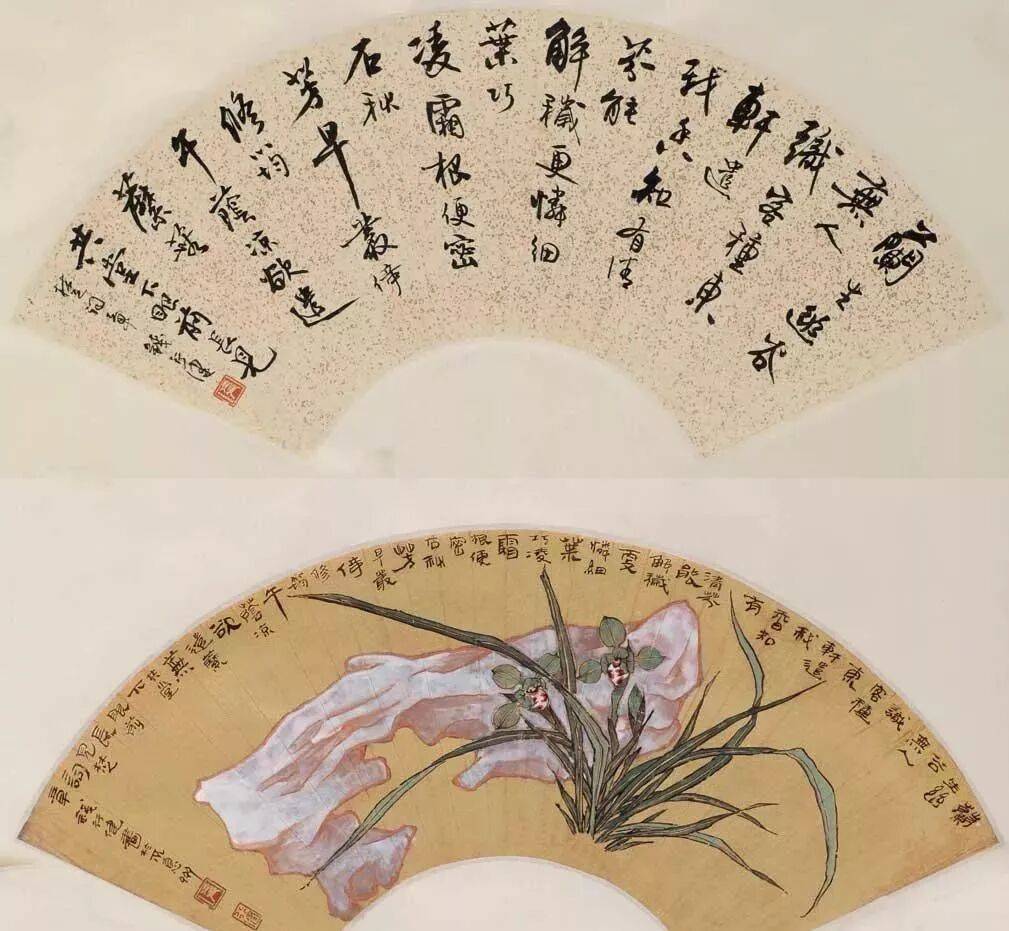 蘭生幽谷
無人
識客種東
軒遺
我香知有清
芬能
解穢更憐細
葉巧
凌霜根便密
石秋
芳早叢倚
修筠
午蔭涼欲遣
蘼蕪
共堂下眼前長見
楚詞章 錢行健
蘭
生幽
谷
無人
識
客種
東
軒遺
我
香知
有
清芬
能
解穢
更
憐細
葉
巧凌
霜
根便
密
石秋
芳
早叢
倚
修筠
午
蔭涼
欲
遣蘼
蕪
共堂
下
眼前
長
見楚
詞
章
錢行健畫於